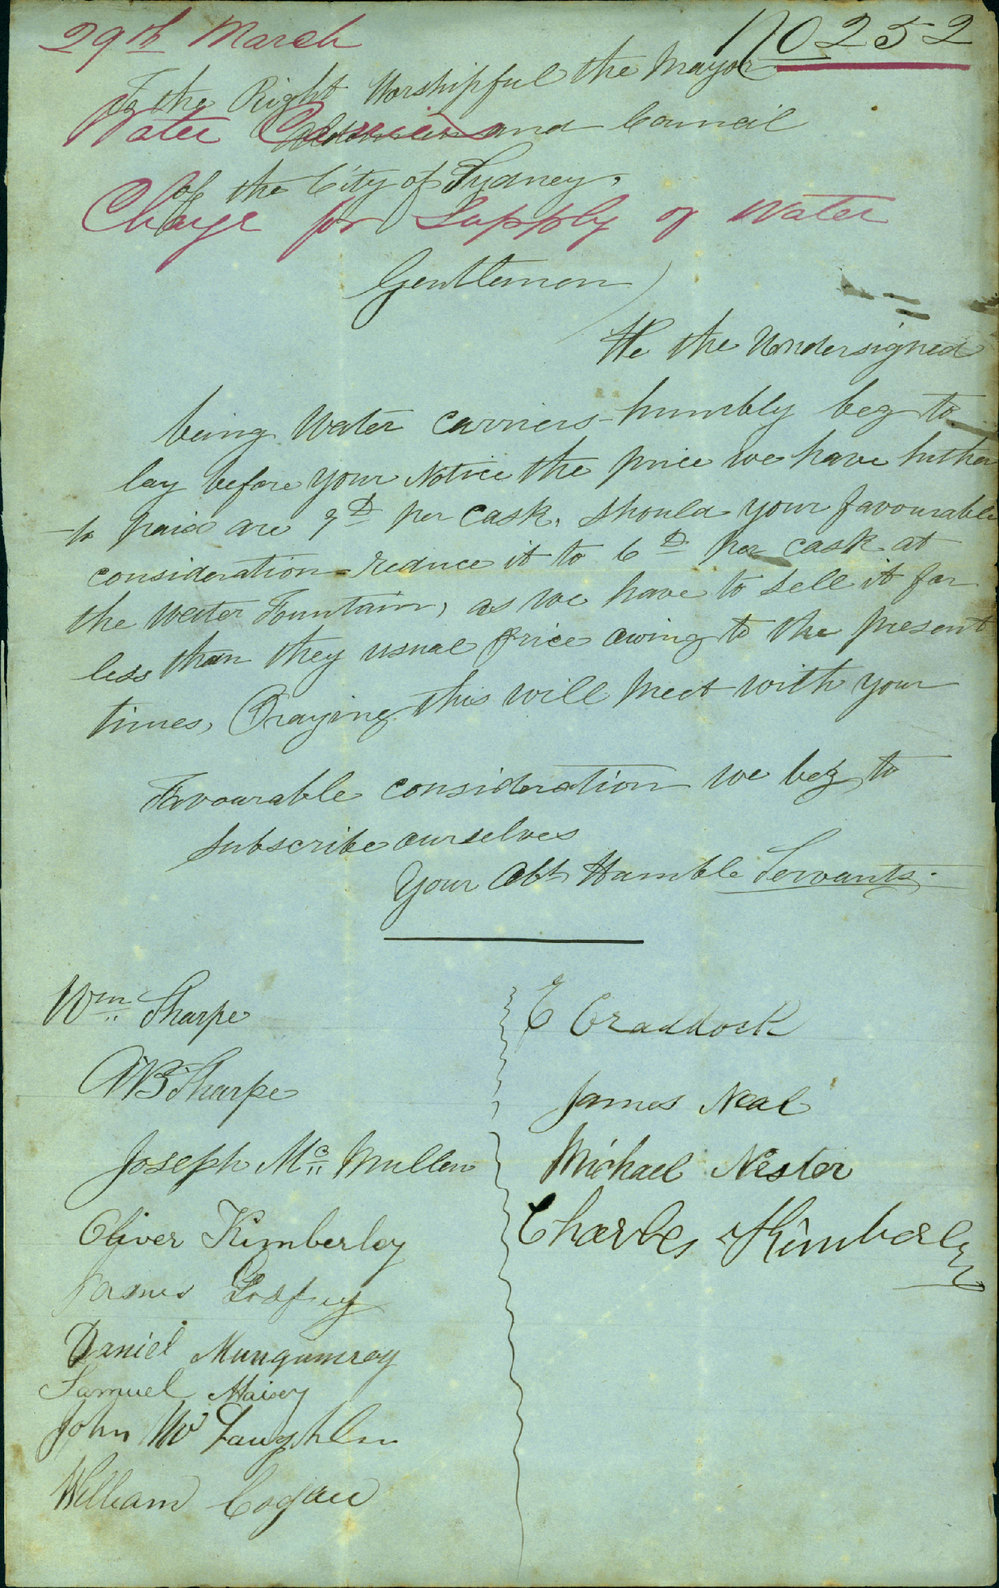 29th March
No 252
To the Right Worshipful the Mayor
Water Carriers
Aldermen and Council
of the City of Sydney.
Charge for Supply of Water
Gentlemen
We the Undersigned
being Water carriers humbly beg to
lay before your Notice the price we have hither
to paid are 9D per cask, should your favourable
consideration reduce it to 6D per cask at
the Water Fountain, as we have to sell it for
less than they usual price owing to the present
times, Praying this will meet with your
Favourable consideration we beg to
subscribe ourselves
Your Obt Humble Servants.
Wm Sharpe
E Craddock
AB Sharpe
James Neal
Joseph Mc Mullen
Michael Nester
Oliver Kimberley
Charles Kimberley
James Godfrey
Daniel Mungumray
Samuel Maisey
John Mc Laughlin
William Cogan